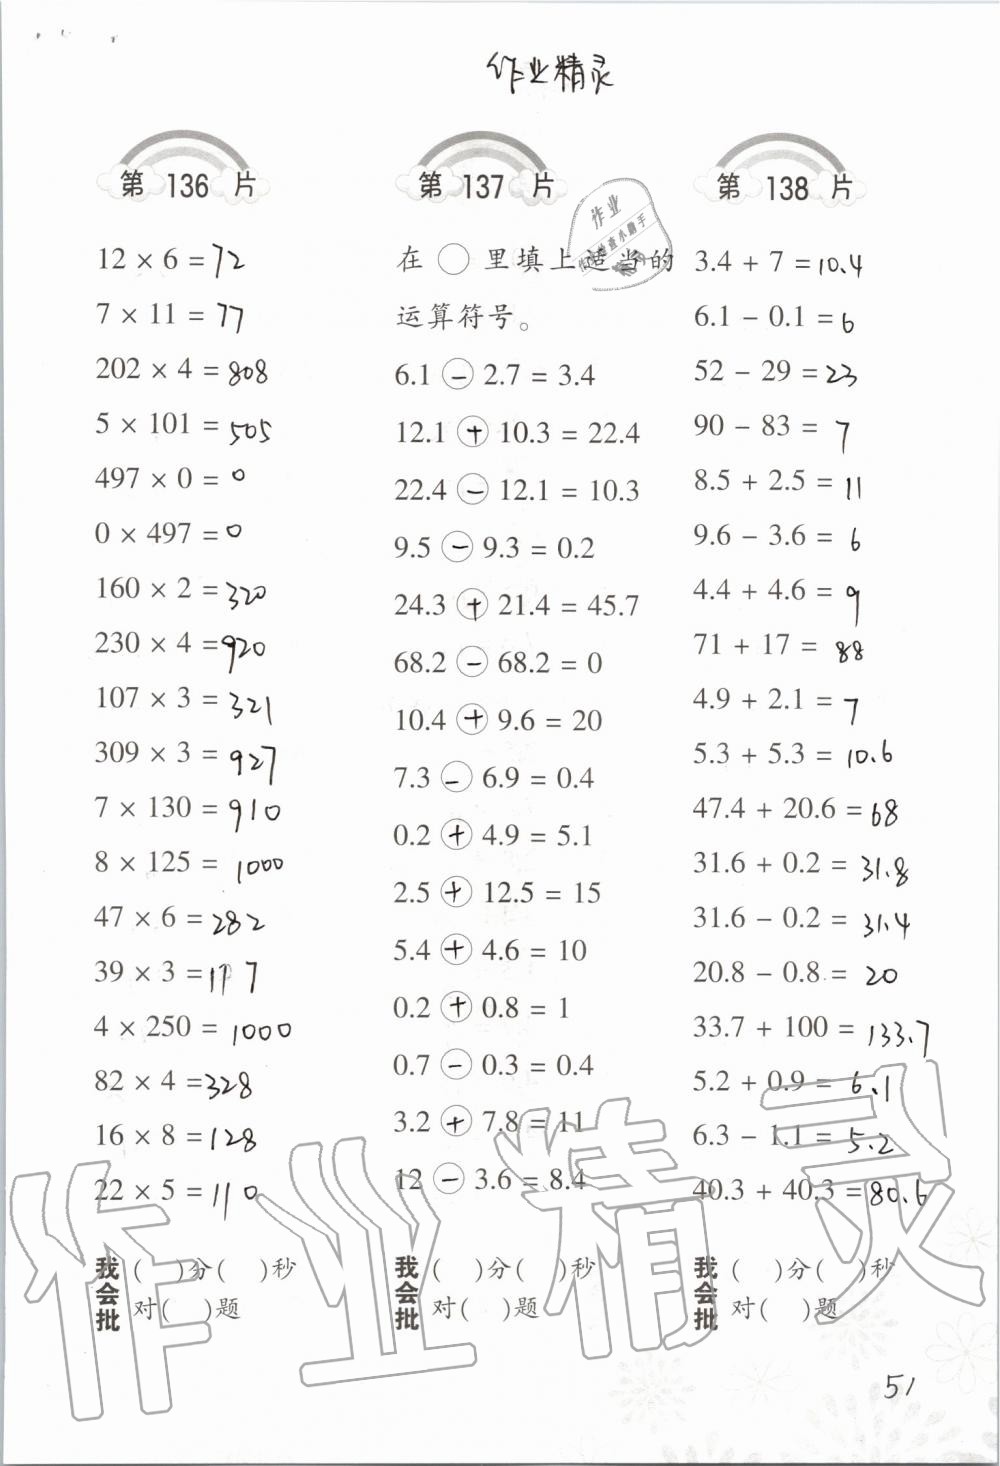 作业精灵
第 136 片
12 × 6 = 72
7 × 11 = 77
202 × 4 = 808
5 × 101 = 505
497 × 0 = 0
0 × 497 = 0
160 × 2 = 320
230 × 4 = 920
107 × 3 = 321
309 × 3 = 927
7 × 130 = 910
8 × 125 = 1000
47 × 6 = 282
39 × 3 = 117
4 × 250 = 1000
82 × 4 = 328
16 × 8 = 128
22 × 5 = 110
我会批
( )分( )秒
对( )题
第 137 片
在 ○ 里填上适当的
运算符号。
6.1 - 2.7 = 3.4
12.1 + 10.3 = 22.4
22.4 - 12.1 = 10.3
9.5 - 9.3 = 0.2
24.3 + 21.4 = 45.7
68.2 - 68.2 = 0
10.4 + 9.6 = 20
7.3 - 6.9 = 0.4
0.2 + 4.9 = 5.1
2.5 + 12.5 = 15
5.4 + 4.6 = 10
0.2 + 0.8 = 1
0.7 - 0.3 = 0.4
3.2 + 7.8 = 11
12 - 3.6 = 8.4
我会批
( )分( )秒
对( )题
第 138 片
3.4 + 7 = 10.4
6.1 - 0.1 = 6
52 - 29 = 23
90 - 83 = 7
8.5 + 2.5 = 11
9.6 - 3.6 = 6
4.4 + 4.6 = 9
71 + 17 = 88
4.9 + 2.1 = 7
5.3 + 5.3 = 10.6
47.4 + 20.6 = 68
31.6 + 0.2 = 31.8
31.6 - 0.2 = 31.4
20.8 - 0.8 = 20
33.7 + 100 = 133.7
5.2 + 0.9 = 6.1
6.3 - 1.1 = 5.2
40.3 + 40.3 = 80.6
我会批
( )分( )秒
对( )题
作业
检查小助手
作业精灵
51